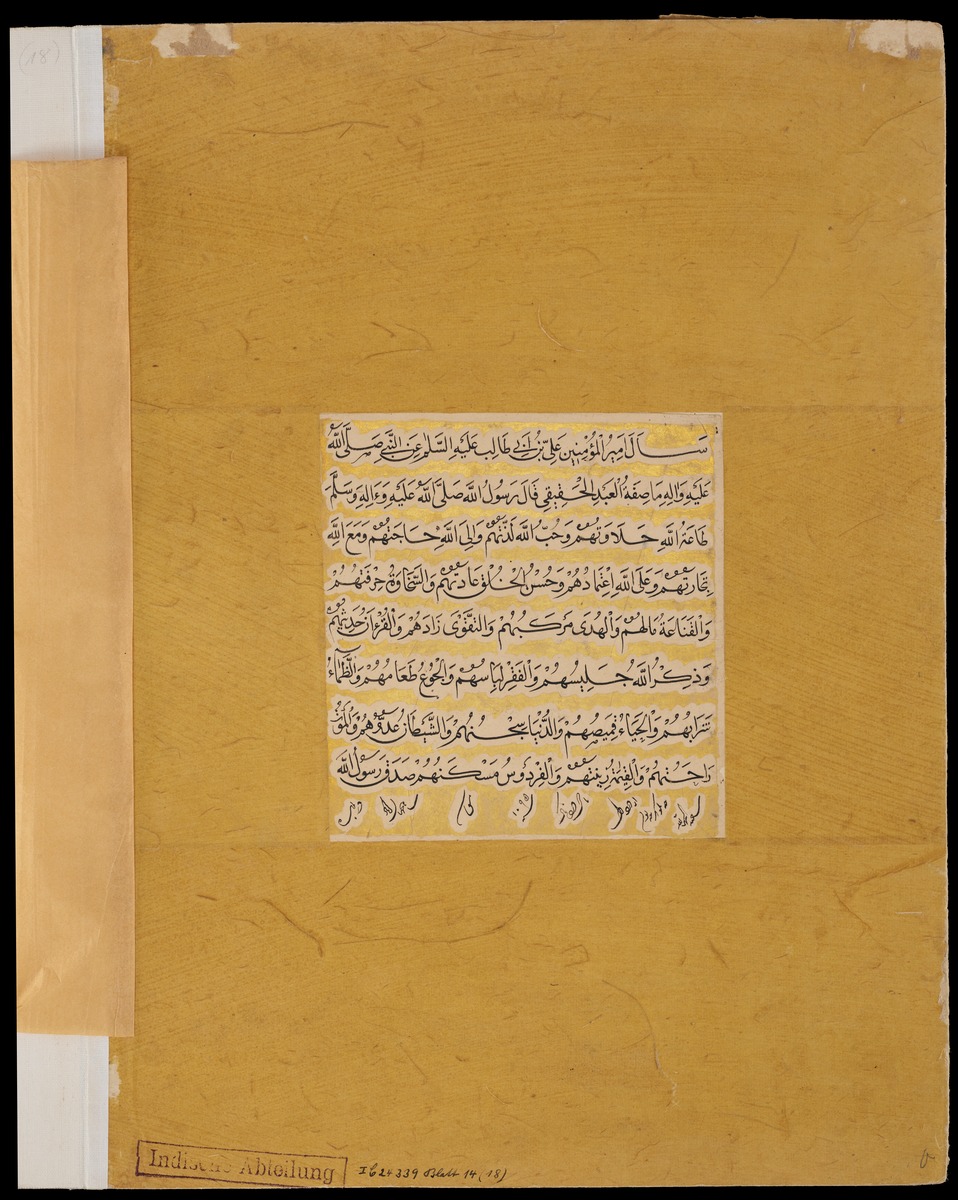 (18)
سَأَلَ اَمِيرُ الْمُؤْمِنِينَ عَلِيُّ بْنُ اَبِي طَالِبٍ عَلَيْهِ السَّلٰمُ عَنِ النَّبِيِّ صَلَّى اللّٰهُ
عَلَيْهِ وَاٰلِهِ مَا صِفَةُ الْعَبْدِ الْحَقِيقِي قَالَ رَسُولُ اللّٰهِ صَلَّى اللّٰهُ عَلَيْهِ وَءَالِهِ وَسَلَّمَ
طَاعَةُ اللّٰهِ حَلَاوَتُهُمْ وَحُبُّ اللّٰهِ لَذَّتُهُمْ وَاِلَى اللّٰهِ حَاجَتُهُمْ وَمَعَ اللّٰهِ
تِجَارَتُهُمْ وَعَلَى اللّٰهِ اِعْتِمَادُهُمْ وَحُسْنُ الْخُلْقِ عَادَتُهُمْ وَالسَّخَاوَةُ حِرْفَتُهُمْ
وَالْقَنَاعَةُ مَالُهُمْ وَالْهُدَى مَرْكَبُهُمْ وَالتَّقْوَى زَادَهُمْ وَالْقُرْءَانُ حَدِيثُهُمْ
وَذِكْرُ اللّٰهِ جَلِيسُهُمْ وَالْفَقْرُ لِبَاسُهُمْ وَالْجُوعُ طَعَامُهُمْ وَالظَّمَآءُ
شَرَابُهُمْ وَالْحَيَاءُ قَمِيصُهُمْ وَالدُّنْيَا سِجْنُهُمْ وَالشَّيْطَانُ عَدُوُّهُمْ وَالْمَوْتُ
رَاحَتُهُمْ وَالْقِيٰمَةُ زِينَتُهُمْ وَالْفِرْدَوْسُ مَسْكَنُهُمْ صَدَقَ رَسُولُ اللّٰهِ
Indische Abteilung
I C 24339 Blatt 14 (18)